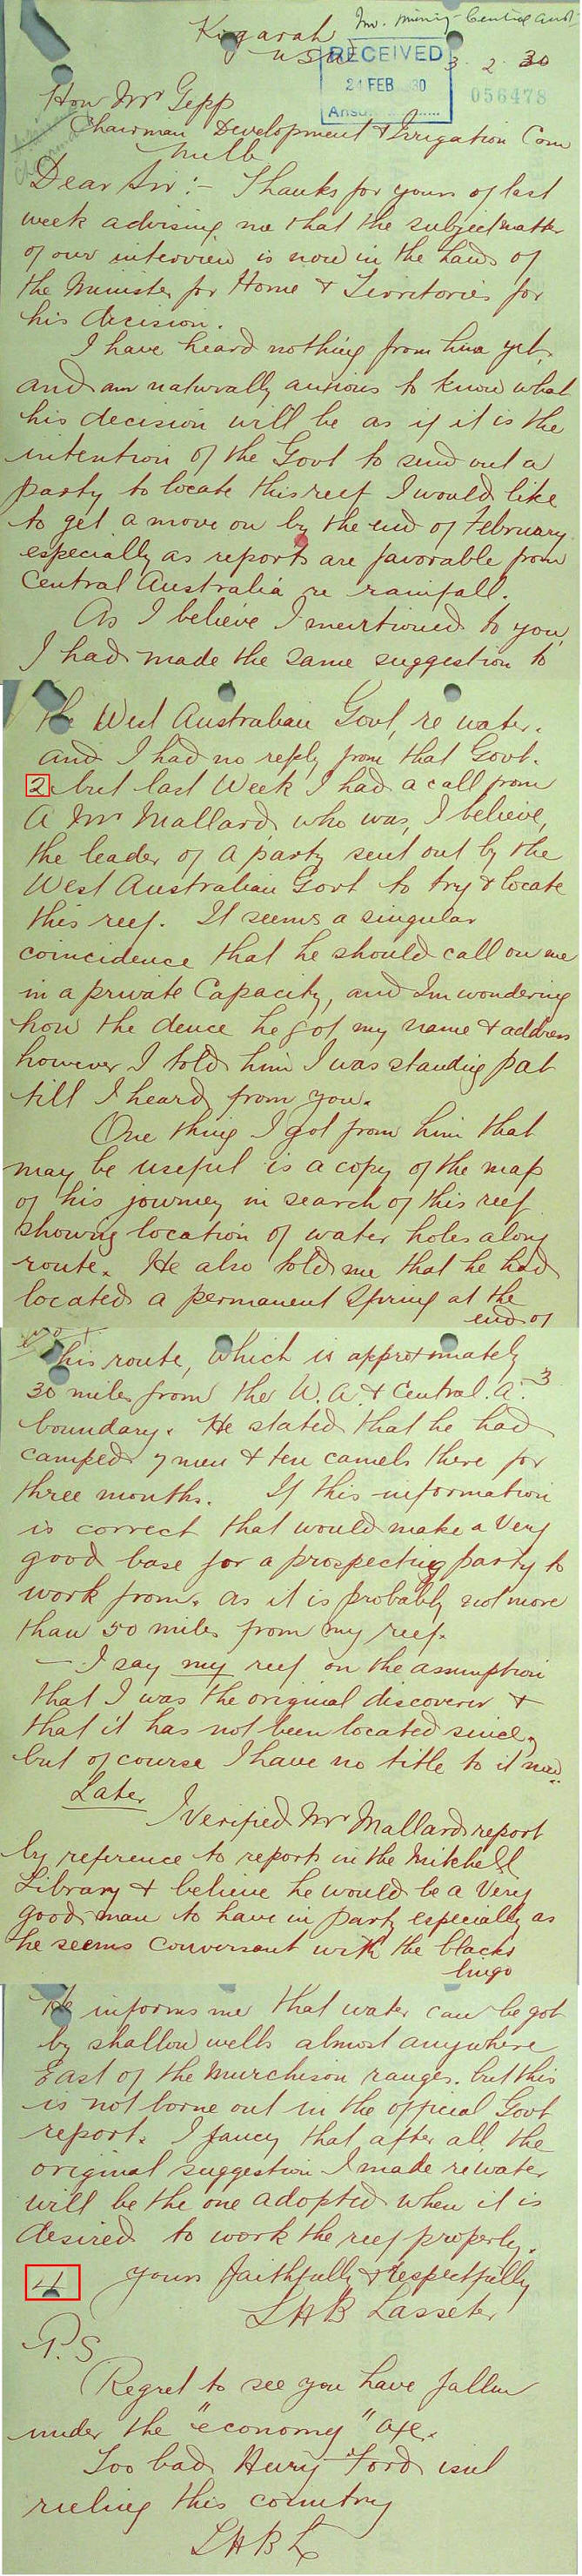 Inv. Mining - Central Aust
Kogarah
NSW
3. 2. 30
RECEIVED
21 FEB 30
Ansd..........
056478
Hon Mr Gepp
Chairman Development & Irrigation Com
Melb
Dear Sir:- Thanks for yours of last
week advising me that the subject matter
of our interview is now in the hands of
the Minister for Home & Territories for
his decision.
I have heard nothing from him yet,
and am naturally anxious to know what
his decision will be as if it is the
intention of the Govt to send out a
party to locate this reef I would like
to get a move on by the end of February
especially as reports are favorable from
Central Australia re rainfall.
As I believe I mentioned to you,
I had made the same suggestion to
the West Australian Govt, re water.
and I had no reply from that Govt.
2 but last Week I had a call from
A Mr Mallard, who was, I believe,
the leader of a party sent out by the
West Australian Govt to try & locate
this reef. It seems a singular
coincidence that he should call on me
in a private Capacity, and Im wondering
how the deuce he got my name & address
however I told him I was standing pat
till I heard from you.
One thing I got from him that
may be useful is a copy of the map
of his journey in search of this reef
showing location of water holes along
route. He also told me that he had
located a permanent Spring at the
end of
his route, which is approximately
30 miles from the W.A. & Central. A. 3
boundary. He stated that he had
camped 7 men & ten camels there for
three months. If this information
is correct that would make a Very
good base for a prospecting party to
work from. as it is probably not more
than 50 miles from my reef.
— I say my reef on the assumption
that I was the original discoverer &
that it has not been located since,
but of course I have no title to it now.
Later
I Verified Mr Mallards report
by reference to reports in the Mitchell
Library & believe he would be a Very
good man to have in party especially as
he seems conversant with the blacks
lingo
He informs me that water can be got
by shallow wells almost anywhere
East of the Murchison ranges. but this
is not borne out in the official Govt
report. I fancy that after all, the
original suggestion I made re water
will be the one adopted when it is
desired to work the reef properly.
4 yours faithfully & respectfully
LHB Lasseter
P.S
Regret to see you have fallen
under the "economy" axe.
Too bad Henry Ford isnt
ruling this country
LHBL